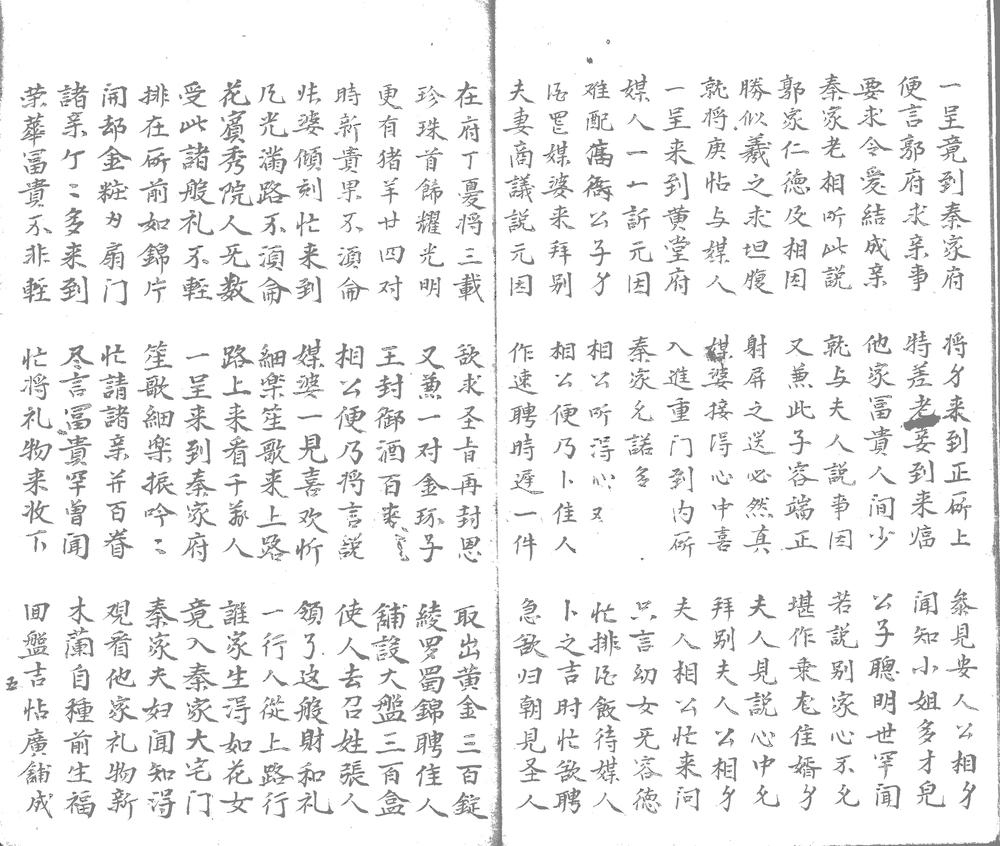 一呈竟到秦家府 将身来到正所上 叅見安人公相身
便言郭府求亲事 特差老妾到来 闻知小姐多才皃
要求令愛結成亲 他家冨貴人间少 公子聰明世罕闻
秦家老相听此説 就与夫人説事因 若説别家心不允
郭家仁德及相因 又兼此子容端正 堪作乗龙佳婿身
勝似羲之求坦腹 射屏之送必然真 夫人見説心中允
就将庚帖与媒人 媒婆接淂心中喜 拜别夫人公相身
一呈来到黄堂府 入進重门到内所 夫人相公忙来问
媒人一一訴元因 秦家允諾多 只言幼女无容德
难配 公子身 相公听淂心又 忙排酒飯待媒人
酒罢媒婆来拜别 相公便乃卜佳人 卜之吉时忙欲聘
夫妻商議説元因 作速聘時遲一件 急欲归朝見圣人
在府丁憂将三載 欲求圣旨再封恩 取出黄金三百錠
珍珠首飾耀光明 又兼一对金环子 綾罗蜀錦聘佳人
更有猪羊廿四对 王封御酒百来 舗設大盤三百盒
時新貴果不湏侖 相公便乃将言説 使人去召姓張人
怅婆傾刻忙来到 媒婆一見喜欢忻 領了这般財和礼
凡光满路不湏侖 細楽笙歌来上路 一行人從上路行
花賓秀院人无数 路上来看千萬人 誰家生淂如花女
受此諸般礼不輕 一呈来到秦家府 竟入秦家大宅门
排在所前如錦片 笙歌細楽振吟〻 秦家夫妇闻知淂
開却金粧为扇门 忙請諸亲并百眷 观看他家礼物新
諸亲个〻多来到 尽言冨貴罕曽闻 木蘭自種前生福
荣華冨貴不非輕 忙将礼物来收下 回盤吉帖廣舗成
五